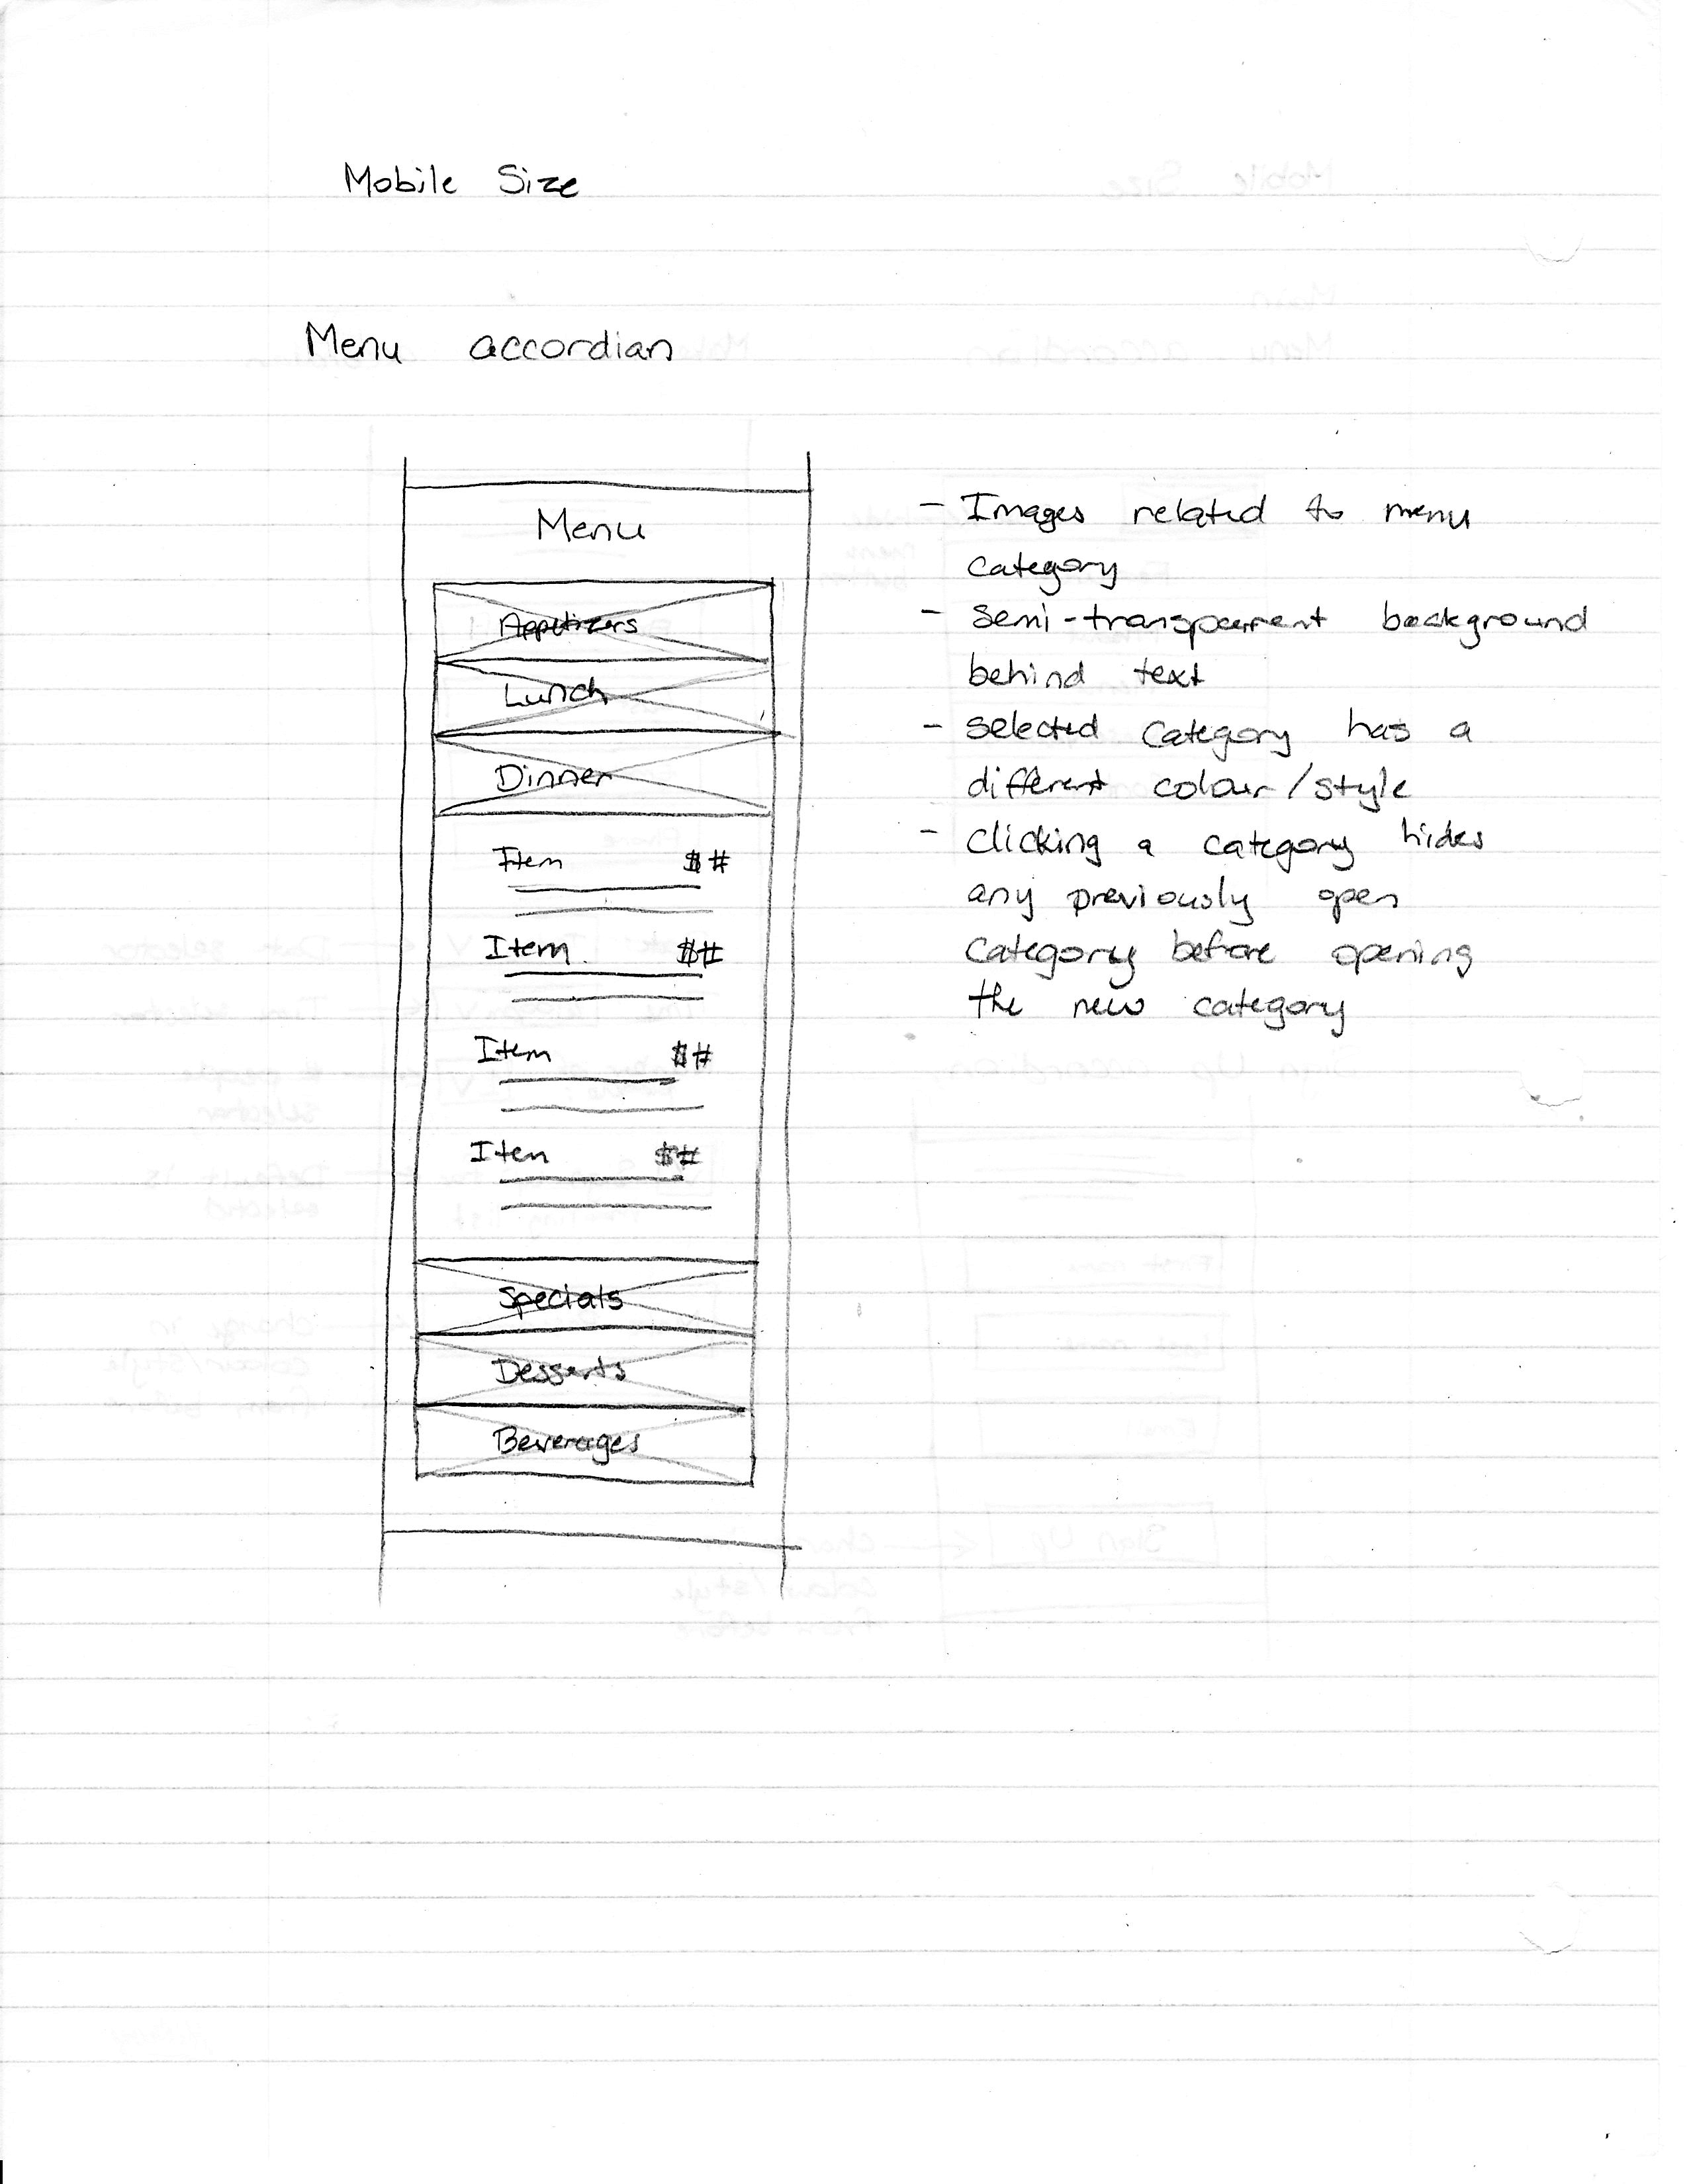 Mobile Size
Menu accordian
Menu
Appetizers
Lunch
Dinner
Item $#
Item $#
Item $#
Item $#
Specials
Desserts
Beverages
- Images related to menu
category
- semi-transparent background
behind text
- selected category has a
different colour/style
- clicking a category hides
any previously open
category before opening
the new category